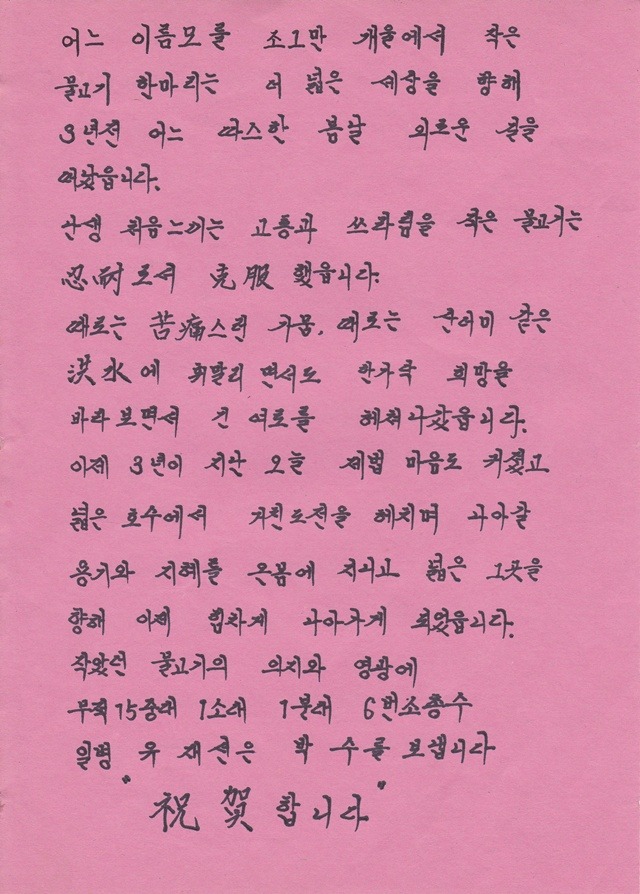 어느 이름모를 조그만 개울에서 작은
물고기 한마리는 더 넓은 세상을 향해
3년전 어느 따스한 봄날 외로운 길을
떠났읍니다.
난생 처음느끼는 고통과 쓰라림을 작은 물고기는
忍耐로서 克服했읍니다.
때로는 苦痛스런 가뭄, 때로는 산더미 같은
洪水에 휘말리면서도 한가닥 희망을
바라보면서 긴 여로를 헤쳐나갔읍니다.
이제 3년이 지난 오늘 제법 마음도 커졌고
넓은 호수에서 거친도전을 헤치며 나아갈
용기와 지혜를 온몸에 지니고 넓은 그곳을
향해 이제 힘차게 나아가게 되었읍니다.
작았던 물고기의 의지와 영광에
무적15중대 1소대 1분대 6번소총수
일병 유 재션은 박수를 보냅니다
"祝賀합니다"